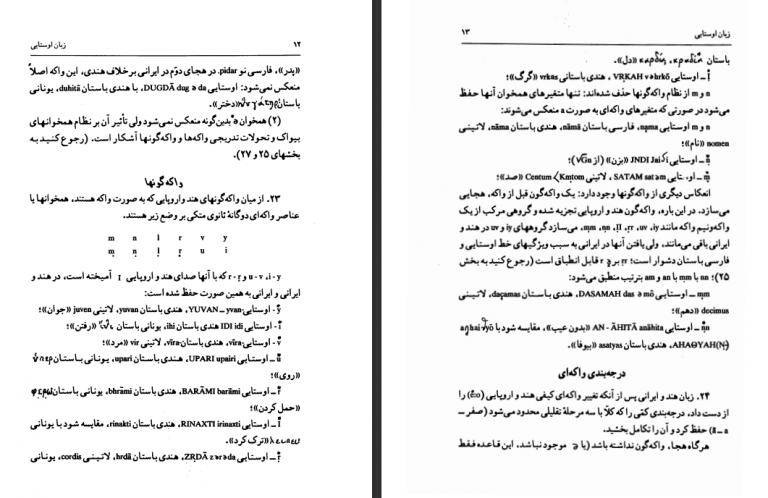 ۱۲ زبان اوستایی
«پدر»، فارسی نو pidar. در هجای دوّم در ایرانی برخلاف هندی، این واکه اصلاً
منعکس نمی‌شود: اوستایی DUGDĀ dug ə da، با هندی باستان duhitā، یونانی
باستان «دختر».
(۲) همخوان ə بدین‌گونه منعکس نمی‌شود ولی تأثیر آن بر نظام همخوانهای
بیواک و تحولات تدریجی واکه‌ها و واکه‌گونها آشکار است. (رجوع کنید به
بخشهای ۲۵ و ۲۷).
واکه‌گونها
۲۳. از میان واکه‌گونهای هند و اروپایی که به صورت واکه هستند، همخوانها یا
عناصر واکه‌ای دوگانهٔ ثانوی متکی بر وضع زیر هستند.
m n l r v y
m̥ n̥ l̥ r̥ u i
i-y، u-v و r̥-r که با آنها صدای هند و اروپایی l آمیخته است، در هند و
ایرانی و ایرانی به همین صورت حفظ شده است:
اوستایی YUVAN ـ yvan، هندی باستان yuvan، لاتینی juven «جوان»؛
اوستایی IDI idi هندی باستان ihi، یونانی باستان «رفتن»؛
اوستایی vīra، هندی باستان vīra، لاتینی vir «مرد»؛
ـ اوستایی UPARI upairi، هندی باستان upari، یونانی باستان
«روی»؛
ـ اوستایی BARĀMI barāmi، هندی باستان bhrāmi، یونانی باستان
«حمل کردن»؛
ـ اوستایی RINAXTI irinaxti، هندی باستان rinakti، مقایسه شود با یونانی
«ترک کرد».
ـ اوستایی ZR̥DĀ zərəda، هندی باستان hrdā، لاتینی cordis، یونانی
زبان اوستایی ۱۳
باستان «دل».
ـ اوستایی VR̥KAH vəhrkō، هندی باستانی vrkas «گرگ»؛
n و m از نظام واکه‌گونها حذف شده‌اند: تنها متغیرهای همخوان آنها حفظ
می‌شود در صورتی که متغیرهای واکه‌ای به صورت a منعکس می‌شوند:
n و m اوستایی nąma، فارسی باستان nāmā، هندی باستان nāma، لاتینی
nomen «نام»؛
ـ اوستایی JNDI Jai «بزن» (از VGn)؛
ـ اوستایی SATAM satəm، لاتینی Centum < Km̥tom «صد»؛
انعکاس دیگری از واکه‌گونها وجود دارد: یک واکه‌گون قبل از واکه، هجایی
می‌سازد. در این باره، واکه‌گون هند و اروپایی تجزیه شده و گروهی مرکب از یک
واکه‌ونیم واکه مانند iy، uv، r̥r، l̥l، n̥n، m̥m، می‌سازد گروههای iy و uv در هند و
ایرانی باقی می‌مانند، ولی یافتن آنها در ایرانی به سبب ویژگیهای خط اوستایی و
فارسی باستان دشوار است؛ r̥r بر r قابل انطباق است (رجوع کنید به بخش
۲۵)؛ n̥n با m̥m با an و am بترتیب منطبق می‌شود:
m̥m ـ اوستایی DASAMAH das ə mō، هندی باستان daçamas، لاتینی
decimus «دهم»؛
n̥n ـ اوستایی AN - ĀHITĀ anāhita «بدون عیب»، مقایسه شود با
AHAΘYAH(N)، هندی باستان asatyas «بیوفا».
درجه‌بندی واکه‌ای
۲۴. زبان هند و ایرانی پس از آنکه تغییر واکه‌ای کیفی هند و اروپایی (ĕ:ŏ) را
از دست داد، درجه‌بندی کمّی را که کلاً با سه مرحلهٔ تقلیلی محدود می‌شود (صفر ـ
a ـ ā) حفظ کرد و آن را تکامل بخشید.
هرگاه هجا، واکه‌گون نداشته باشد (یا ə موجود نباشد. این قاعده فقط